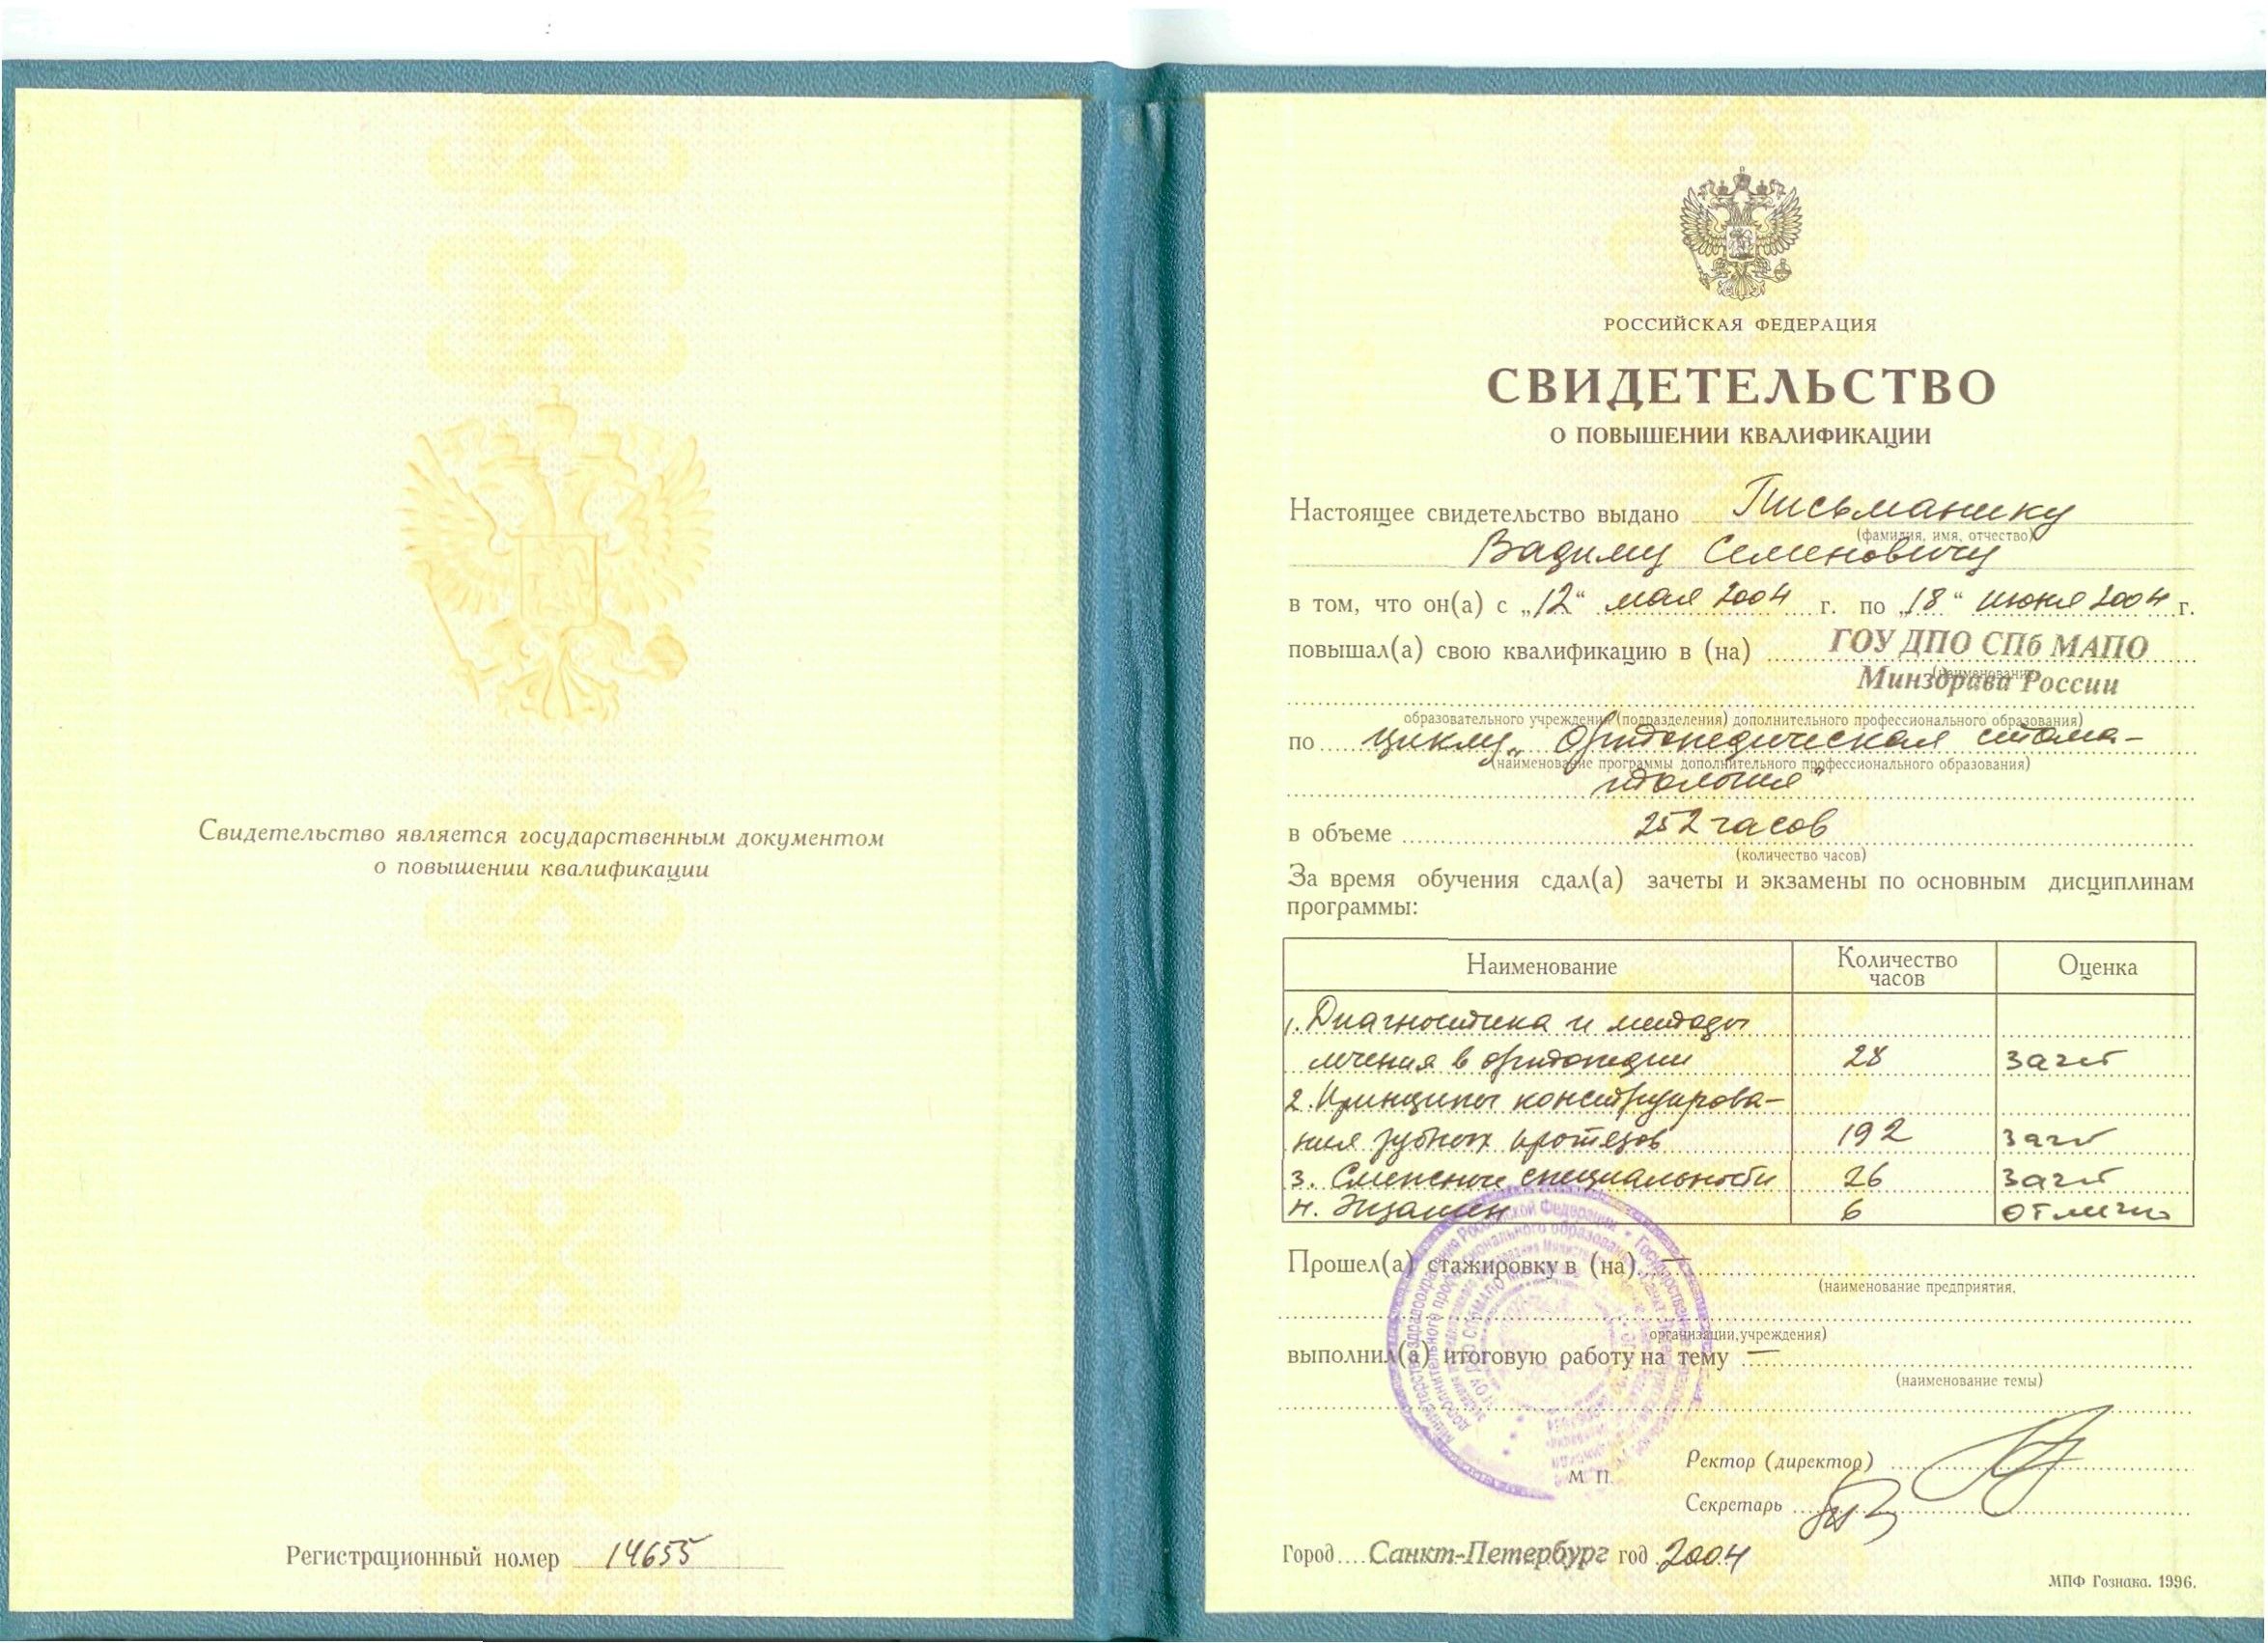 Свидетельство является государственным документом
о повышении квалификации
Регистрационный номер 14655
РОССИЙСКАЯ ФЕДЕРАЦИЯ
СВИДЕТЕЛЬСТВО
О ПОВЫШЕНИИ КВАЛИФИКАЦИИ
Настоящее свидетельство выдано Письманику
(фамилия, имя, отчество)
Вадиму Семеновичу
в том, что он(а) с „12“ мая 2004 г. по „18“ июня 2004 г.
повышал(а) свою квалификацию в (на) ГОУ ДПО СПб МАПО
(наименование
Минздрава России
образовательного учреждения (подразделения) дополнительного профессионального образования)
по циклу „Ортопедическая стома-
(наименование программы дополнительного профессионального образования)
тология"
в объеме 252 часов
(количество часов)
За время обучения сдал(а) зачеты и экзамены по основным дисциплинам
программы:
Наименование Количество часов Оценка
1. Диагностика и методы
лечения в ортопедии 28 зачет
2. Принципы конструирова-
ния зубных протезов 192 зачет
3. Смежные специальности 26 зачет
4. Экзамен 6 отлично
Прошел(а) стажировку в (на) —
(наименование предприятия,
организации, учреждения)
выполнил(а) итоговую работу на тему —
(наименование темы)
М П.
Ректор (директор)
Секретарь
Город Санкт-Петербург год 2004
МПФ Гознака. 1996.